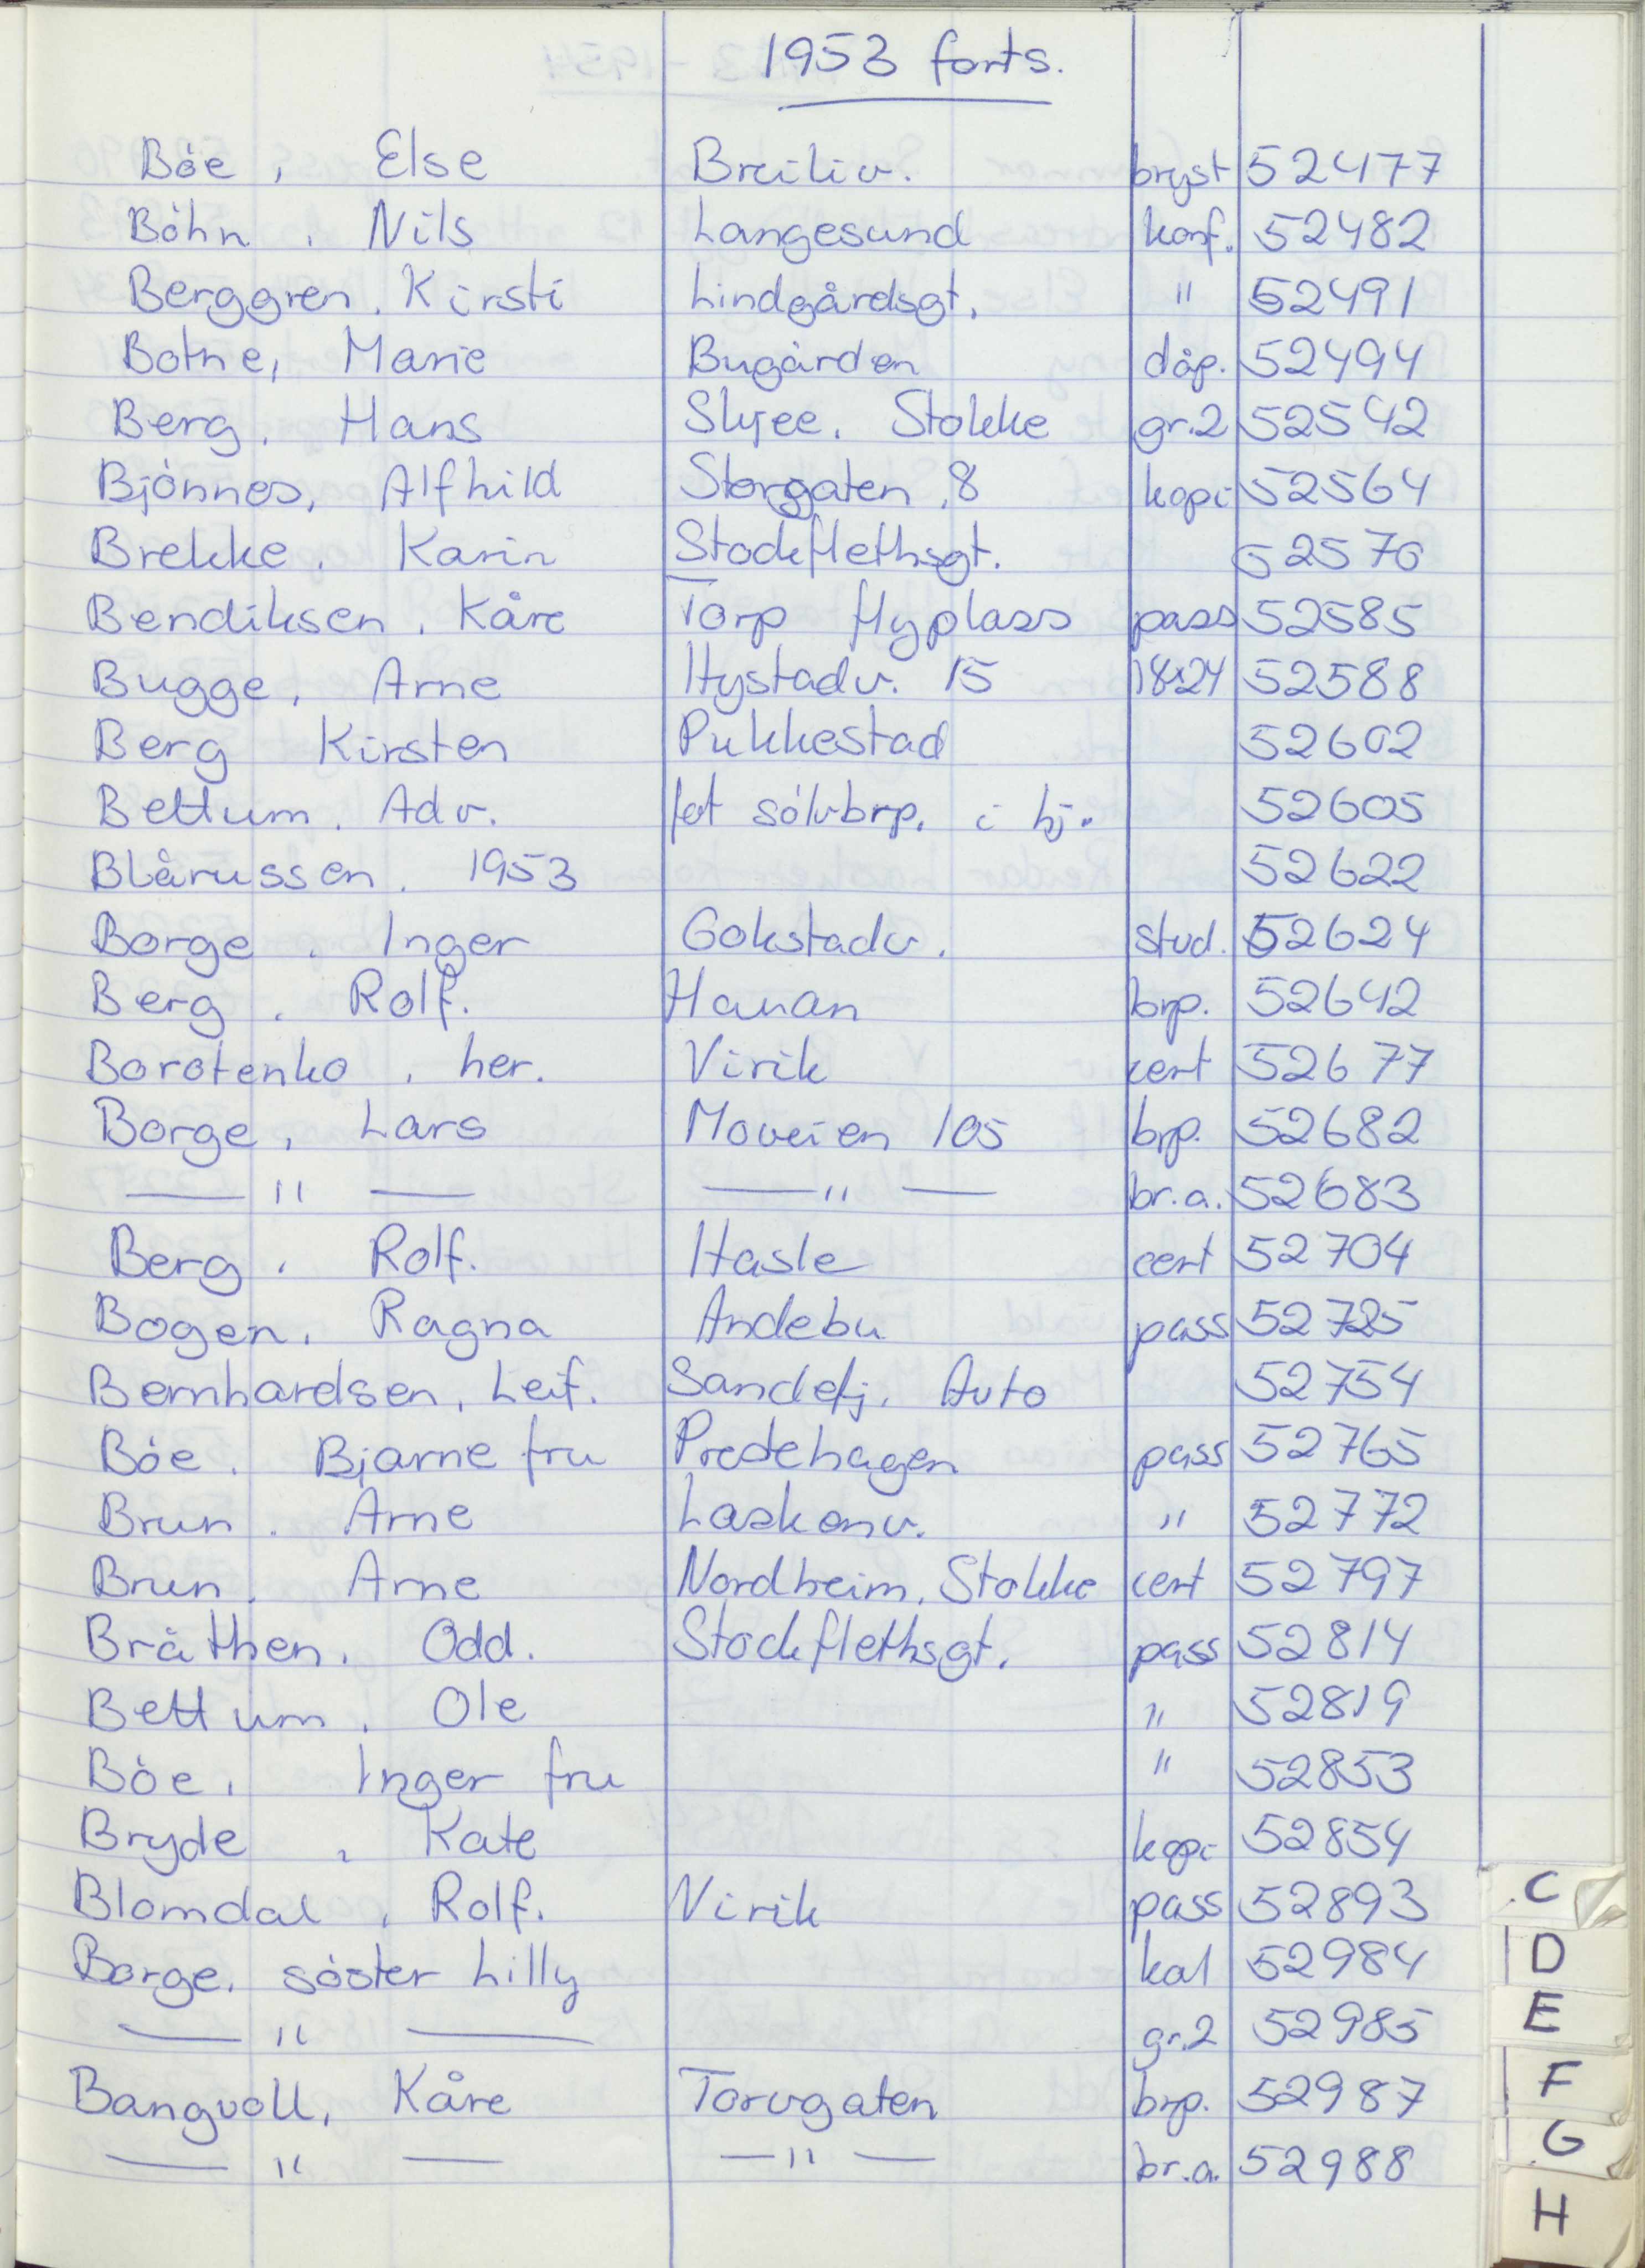 1953 forts.
Bóe, Else Breiliv. bryst 52477
Bóhn, Nils Langesund konf. 52482
Berggren, Kirsti Lindgårdsgt. " 52491
Bothe, Marie Bugården dåp. 52494
Berg, Hans Skjee, Stokke gr.2 52542
Bjónnes, Alfhild Storgaten, 8 kopi 52564
Brekke, Karin Stockflethsgt. 52570
Bendiksen, Kåre Torp flyplass pass 52585
Bugge, Arne Hystadv. 15 18x24 52588
Berg Kirsten Pukkestad 52602
Bettum, Adv. fot sólvbrp. i hj. 52605
Blårussen, 1953 52622
Borge, Inger Gokstadv. stud. 52624
Berg, Rolf. Hauan brp. 52642
Borotenko, her. Virik cert 52677
Borge, Lars Moveien 105 brp. 52682
— " — — " — br.a. 52683
Berg, Rolf. Hasle cert 52704
Bogen, Ragna Andebu pass 52725
Bernhardsen, Leif. Sandefj. Auto 52754
Bóe, Bjarne fru Prestehagen pass 52765
Brun, Arne Laskenv. " 52772
Brun, Arne Nordheim, Stokke cert 52797
Bråthen, Odd. Stockflethsgt. pass 52814
Bettum, Ole " 52819
Bóe, Inger fru " 52853
Bryde, Kate kopi 52854
Blomdal, Rolf. Virik pass 52893
Borge, sóster Lilly kal 52984
— " — gr.2 52985
Bangvoll, Kåre Torvgaten brp. 52987
— " — — " — br.a. 52988
C
D
E
F
G
H